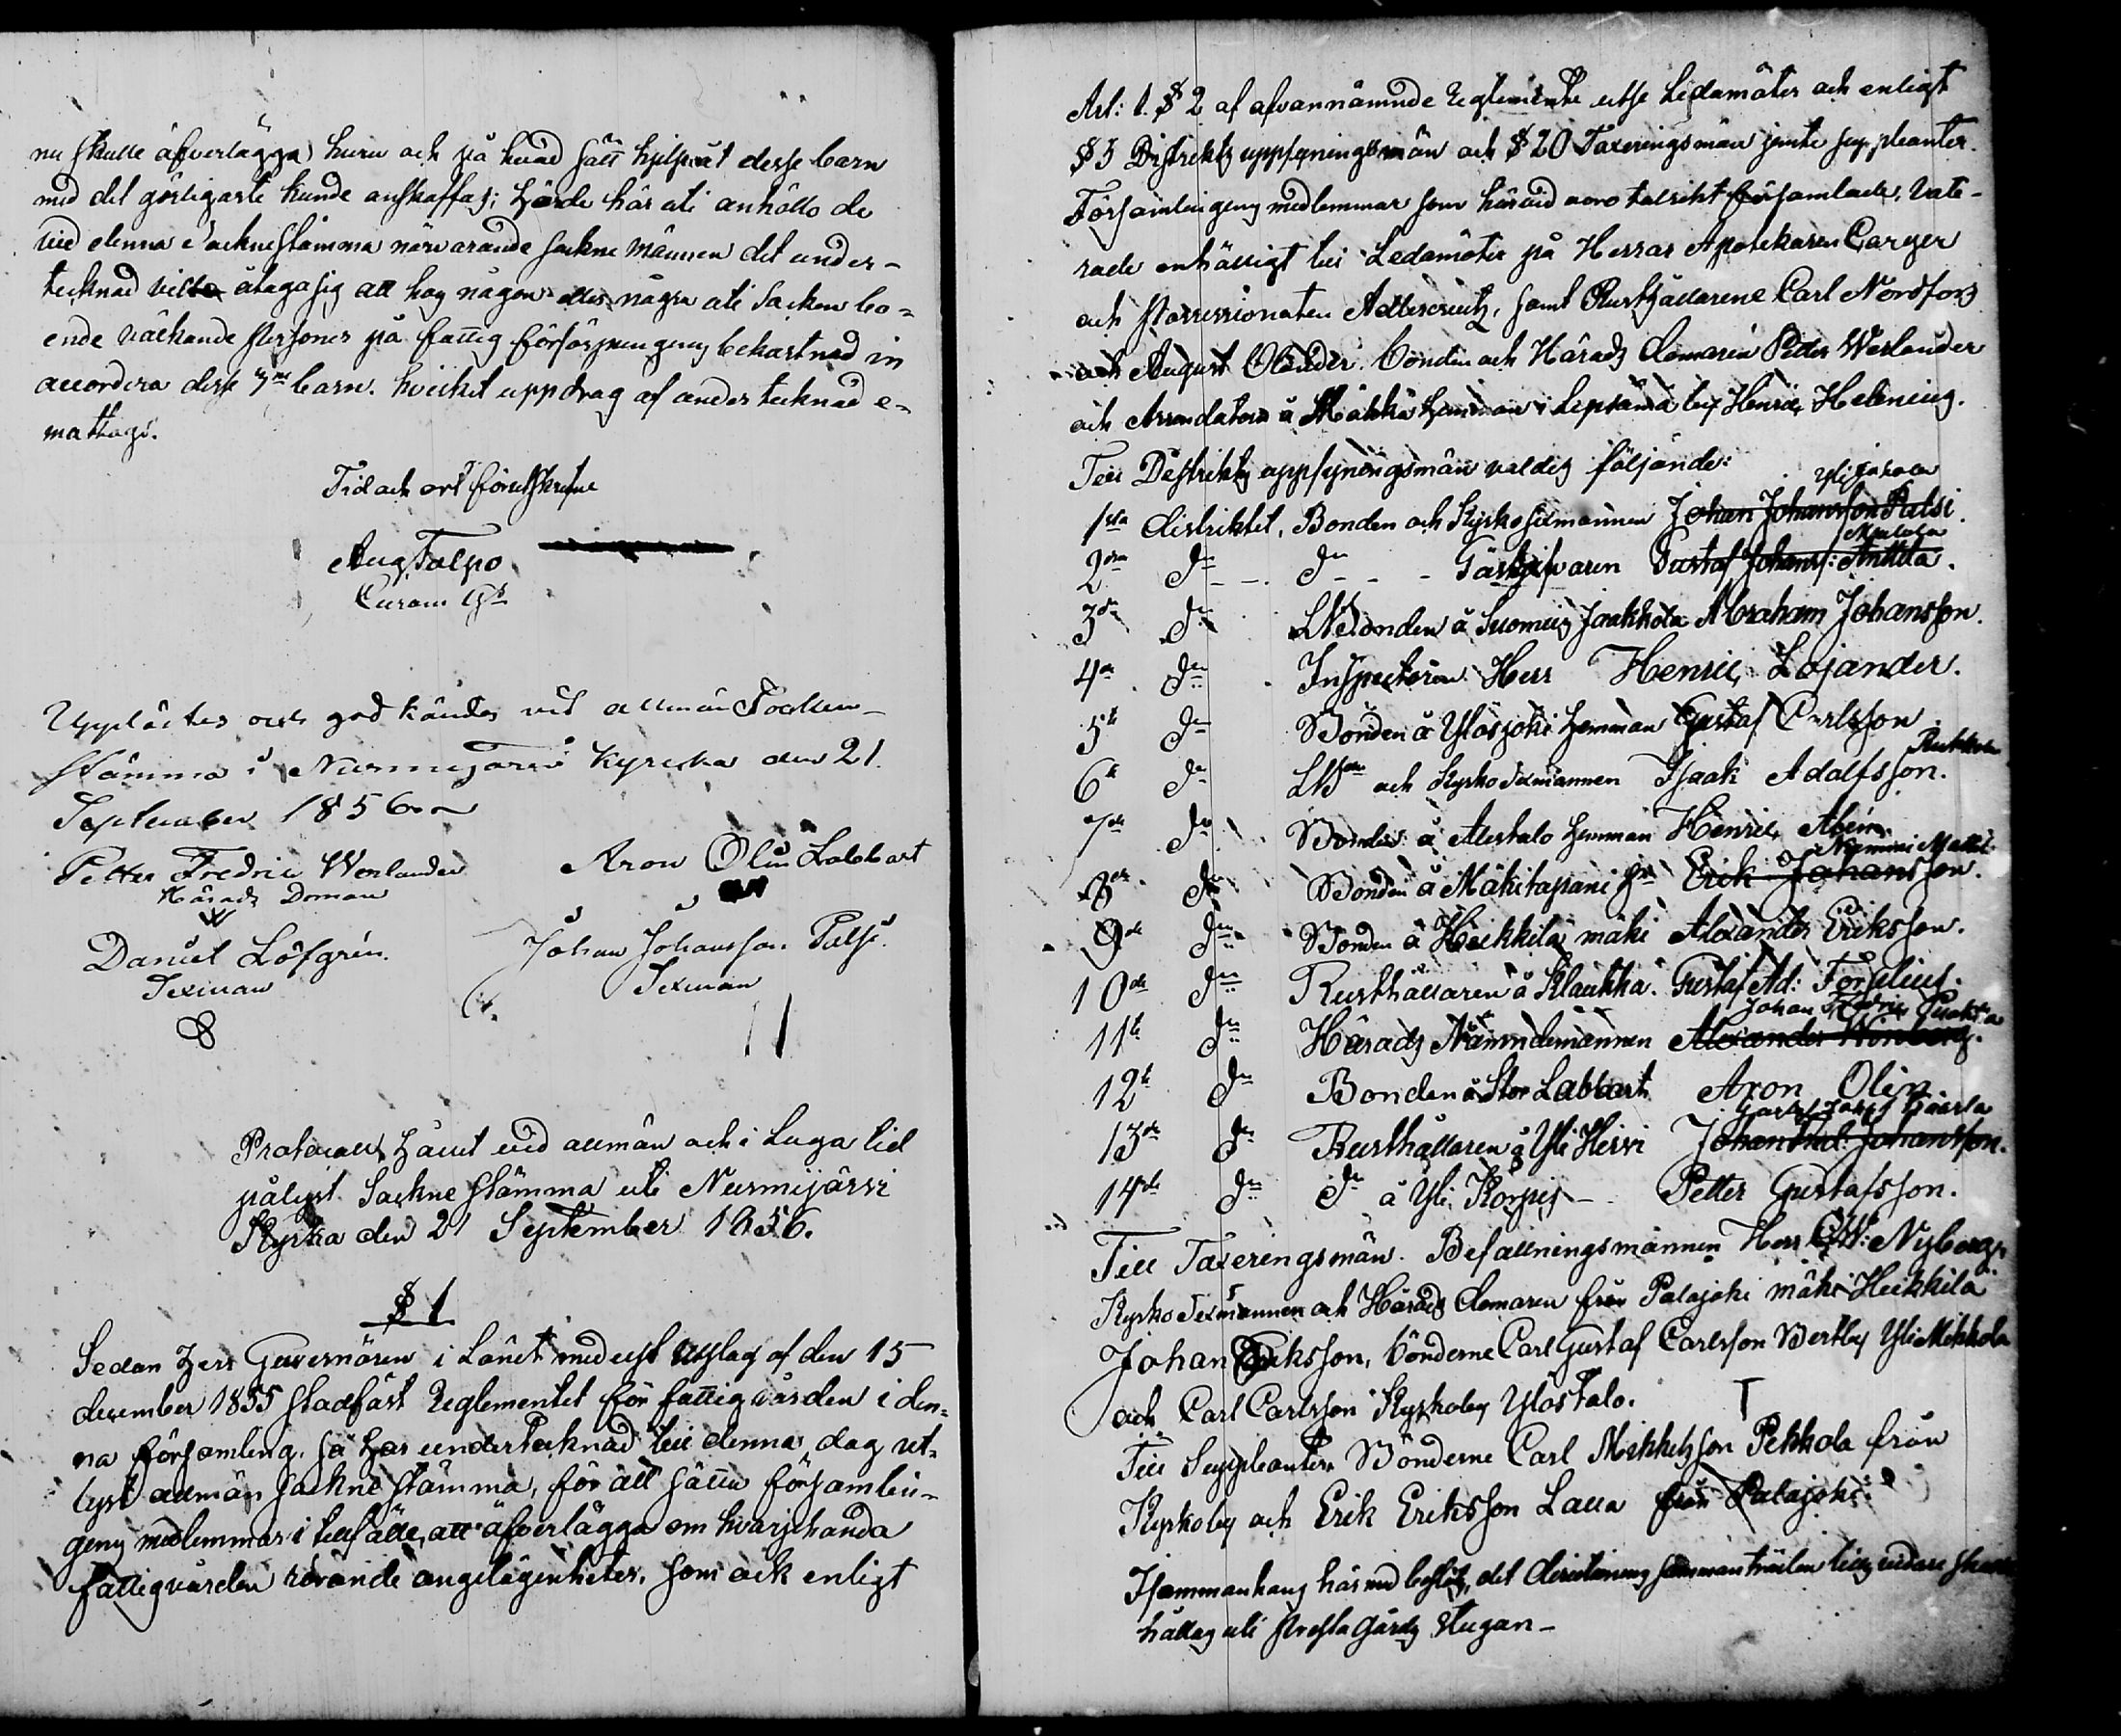 nu skulle öfverlägga huru och på hvad sätt hjelp åt desse barn
med det görligaste kunde anskaffas; härde här uti anhöllo de
vid denna Sockne Stämma närvarande Sockne männen det under-
tecknad ville åtaga sig att hos någon eller några uti Socken bo-
ende välkände personer på fattig försörjningens bekostnad in
accordera desse 3ne barn. hvilket uppdrag af undertecknad e-
mottogs.
Tid och ort förutskrefne
Aug Talpo
Upplästes och godkändes vid allmän Socken-
stämma i Nurmijärvi Kyrcka den 21.
September 1856
Petter Fredric Werlander
Härads Doman
Aron Olin Labbart
Daniel Löfgrén.
Sexman
Johan Johansson Palsi.
Sexman
Protocoll hållit vid allmän och i Laga tid
pålyst Sockne Stämma uti Nurmijärvi
Kyrka den 21 September 1856.
§ 1
Sedan Herr Guvernören i Länet medelst Utslag af den 15
december 1855 stadfäst Reglementet för fattigvården i den-
na församling, så har undertecknad till denna dag ut-
lyst allmän Sockne stämma, för att sätta församlin-
gens medlemmar i tillfälle, att öfverlägga om hvarjehanda
fattigvården rörande angelägenheter, som ock enligt
Art: 1. § 2 af ofvannämnde Reglemente utse Ledamöter och enligt
§ 5 Distrikts uppsyningsmän och § 20 Taxeringsmän jemte suppleanter.
Församlingens medlemmar som härvid voro talrikt församlade, vote-
rade enhälligt till Ledamöter på Herrar Apothekaren Carger
och Possessionaten Adlercreutz, samt Rusthållarene Carl Nordfors
och August Olander. bonden och Härads domaren Petter Werlander
och Arrendatorn å Mäkkä hemman i Lepsämä by Henric Helenius.
Till Distrikts uppsyningsmän valdes följande:
Yli Jaskola
1sta distriktet, Bonden och Kyrkosexmannen Johan Johansson Palsi.
2dra do do Gästgifvaren Gustaf Johanss: Anttila.
3de do Bonden å Suomies Jaakkola Abraham Johansson.
4de do Inspectoren Herr Henric Lojander.
5te do Bonden å Ylösjoki hemman Gustaf Carlsson
6te do och Kyrko Sexmannen Isaak Adolfsson.
7de do Bonden å Alestalo hemman Henric Alein.
Nummi Mattil
8de do Bonden å Mäkitapani Erik Johansson.
9de do Bonden å Heikkilä mäki Alexander Eriksson.
10de do Rusthållaren å Klaukka Gustaf Ad: Forselius.
Johan Fredric
11te do Härads Nämndemannen Alexander Winberg.
12te do Bonden å Stor Labbart Aron Olin.
13de do Rusthållaren å Yli Hirvi Johan Johansson.
14de do do å Yli Korpis Petter Gustafsson.
Till Taxeringsmän. Befallningsmannen Herr Nyberg.
Kyrko Sexmannen och Härads domaren från Palajoki mäki Heikkilä
Johan Eriksson, bönderne Carl Gustaf Carlsson Bertby Yli Mikkola
och Carl Carlsson Kyrkoby Ylöstalo.
Till Suppleanter Bönderne Carl Mikkelsson Pekkola från
Kyrkoby och Erik Eriksson Lalla från Palajoki
I sammanhang härmed beslöts, det directionens sammanträden tills vidare
hållas uti Presta Gårds Stugan-